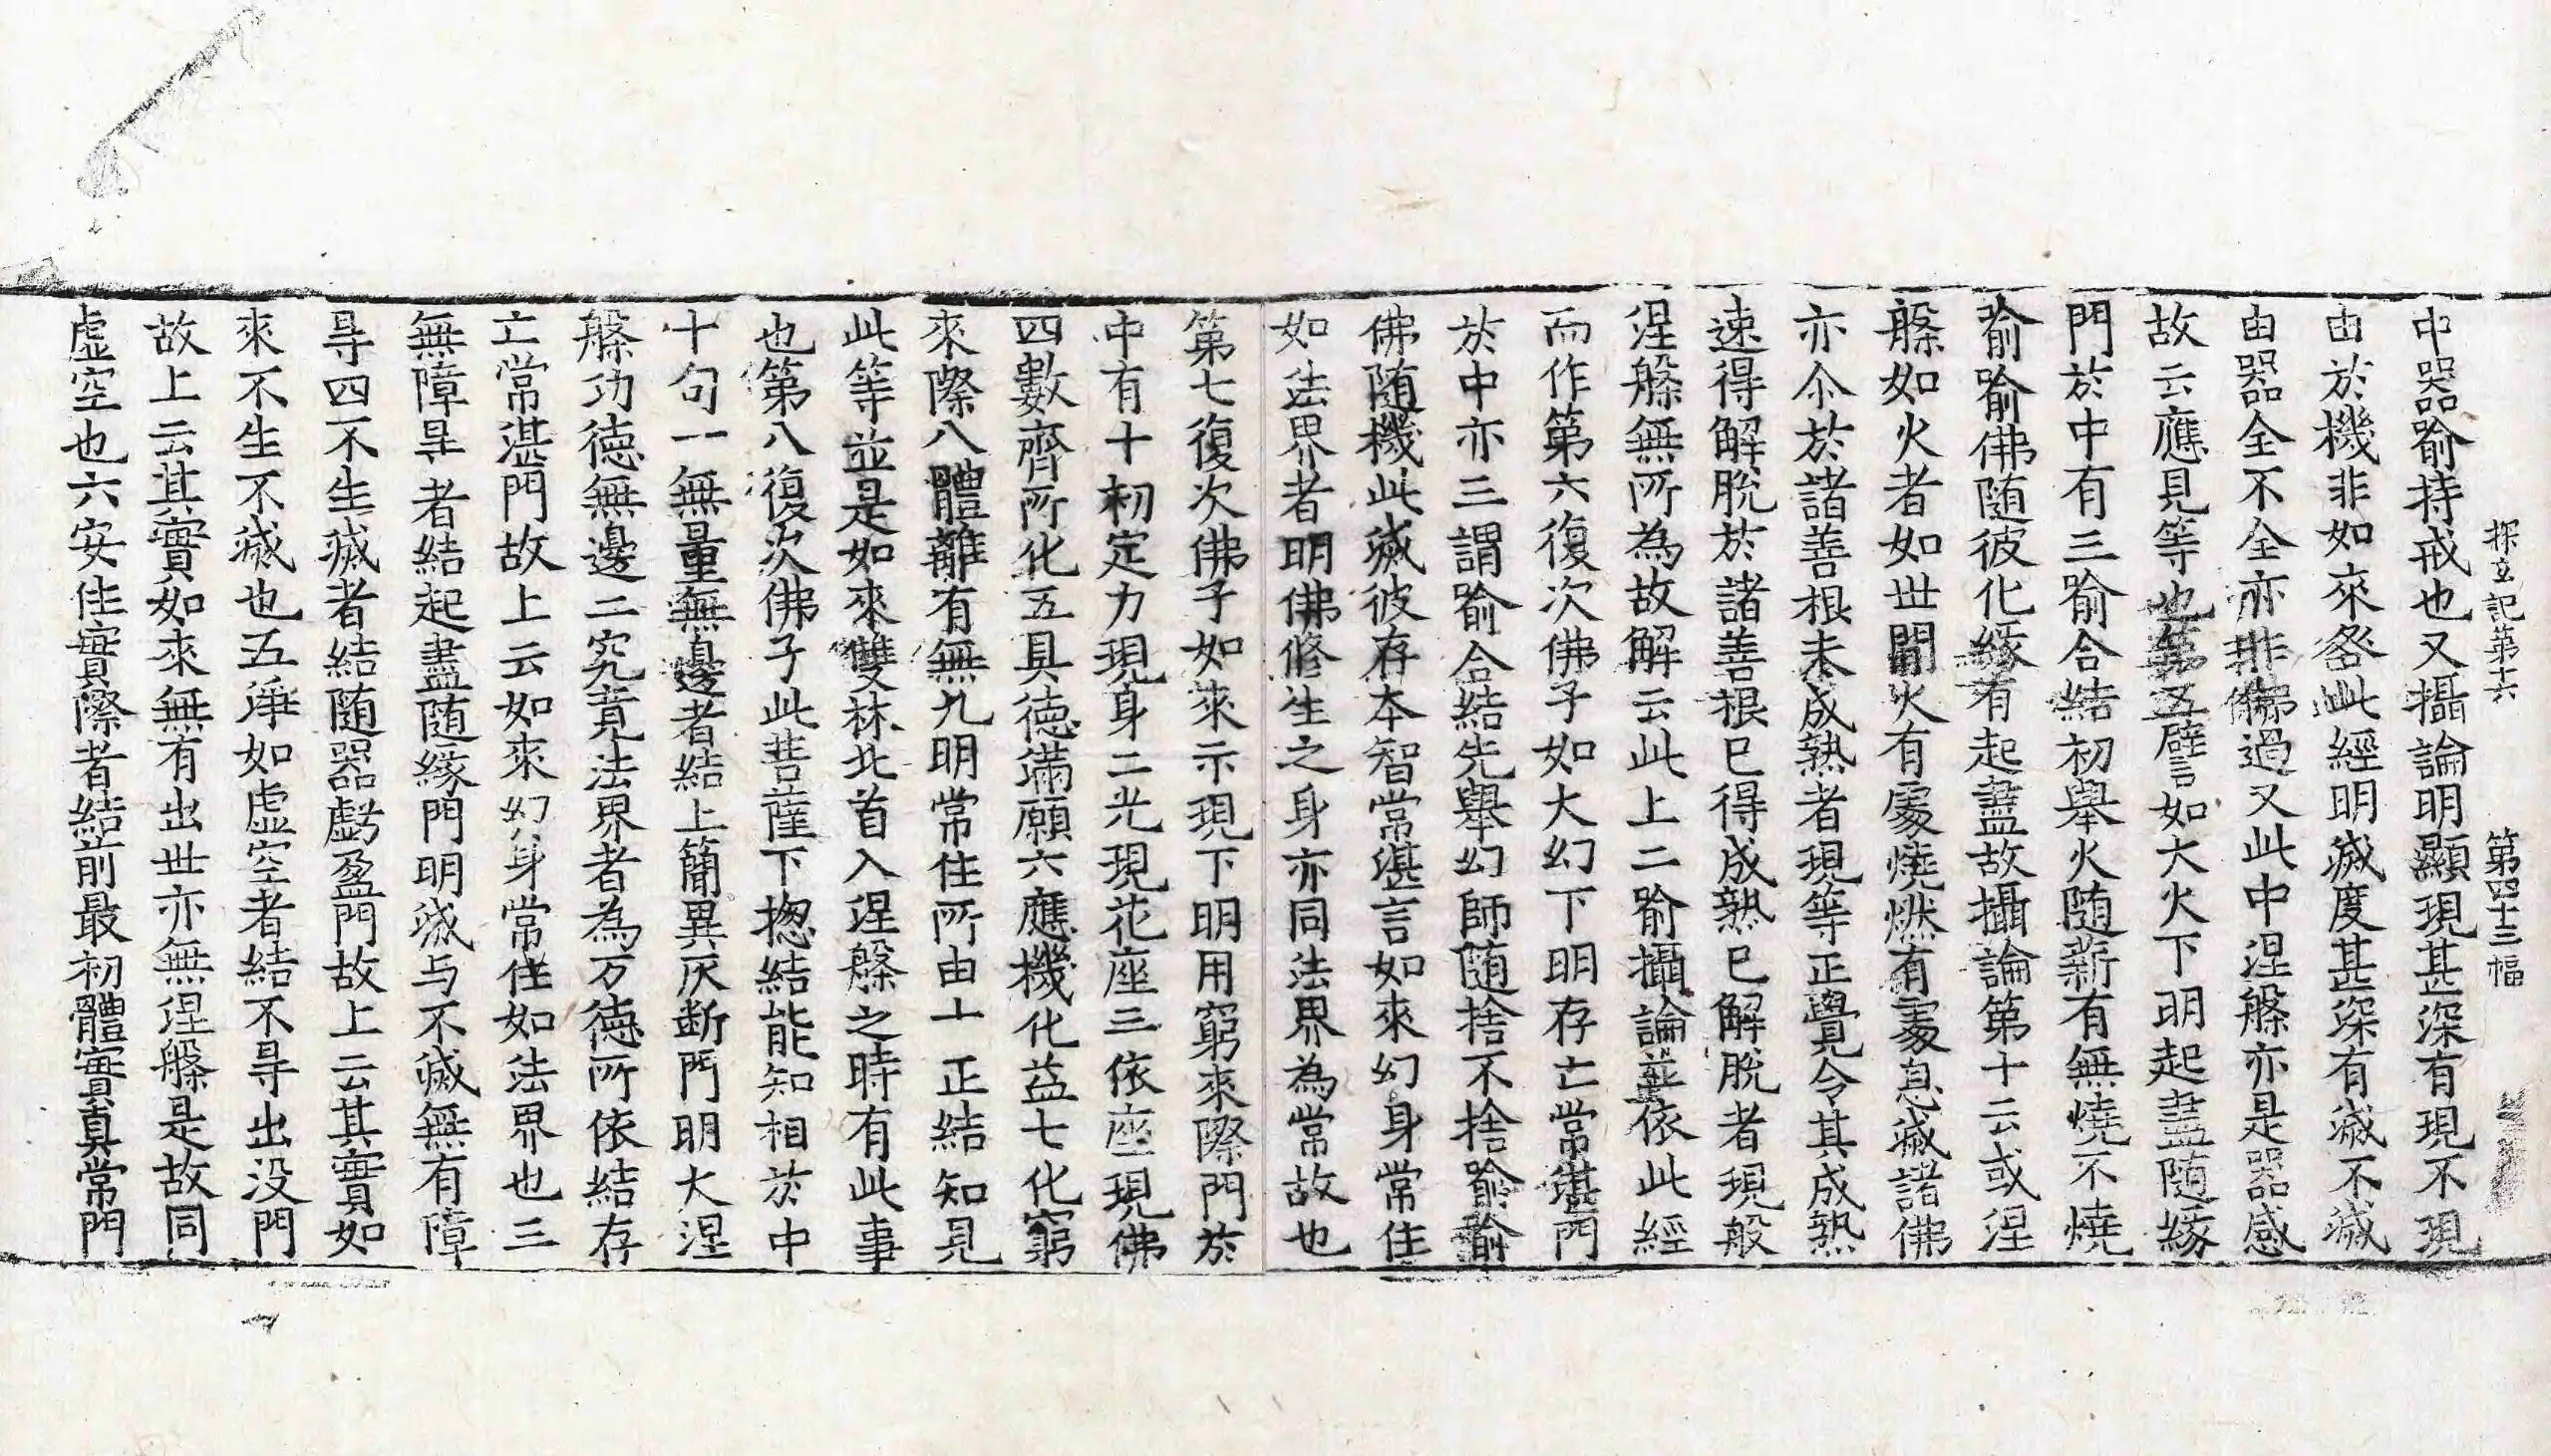 探玄記第十六　第四十三幅
中器喻持戒也又攝論明顯現甚深有現不現
由於機非如來咎此經明滅度甚深有滅不滅
由器全不全亦非佛過又此中涅槃亦是器感
故云應見等也第五譬如大火下明起盡随緣
門於中有三喻合結初舉火随薪有無燒不燒
喻喻佛随彼化緣有起盡故攝論第十云或涅
槃如火者如世間火有處燒燃有處息滅諸佛
亦尒於諸善根未成熟者現等正覺令其成熟
速得解脫於諸善根已得成熟已解脫者現般
涅槃無所為故解云此上二喻攝論並依此經
而作第六復次佛子如大幻下明存亡常湛門
於中亦三謂喻合結先舉幻師随捨不捨喻喻
佛随機此滅彼存本智常湛言如來幻身常住
如法界者明佛修生之身亦同法界為常故也
第七復次佛子如來示現下明用窮來際門於
中有十初定力現身二光現花座三依座現佛
四數齊所化五具德滿願六應機化益七化窮
來際八體離有無九明常住所由十正結知見
此等並是如來雙林北首入涅槃之時有此事
也第八復次佛子此菩薩下揔結能知相於中
十句一無量無邊者結上簡異灰断門明大涅
槃功德無邊二究竟法界者為万德所依結存
亡常湛門故上云如來幻身常住如法界也三
無障㝵者結起盡随緣門明滅与不滅無有障
㝵四不生滅者結随器虧盈門故上云其實如
來不生不滅也五淨如虛空者結不㝵出没門
故上云其實如來無有出世亦無涅槃是故同
虛空也六安住實際者結前最初體實真常門